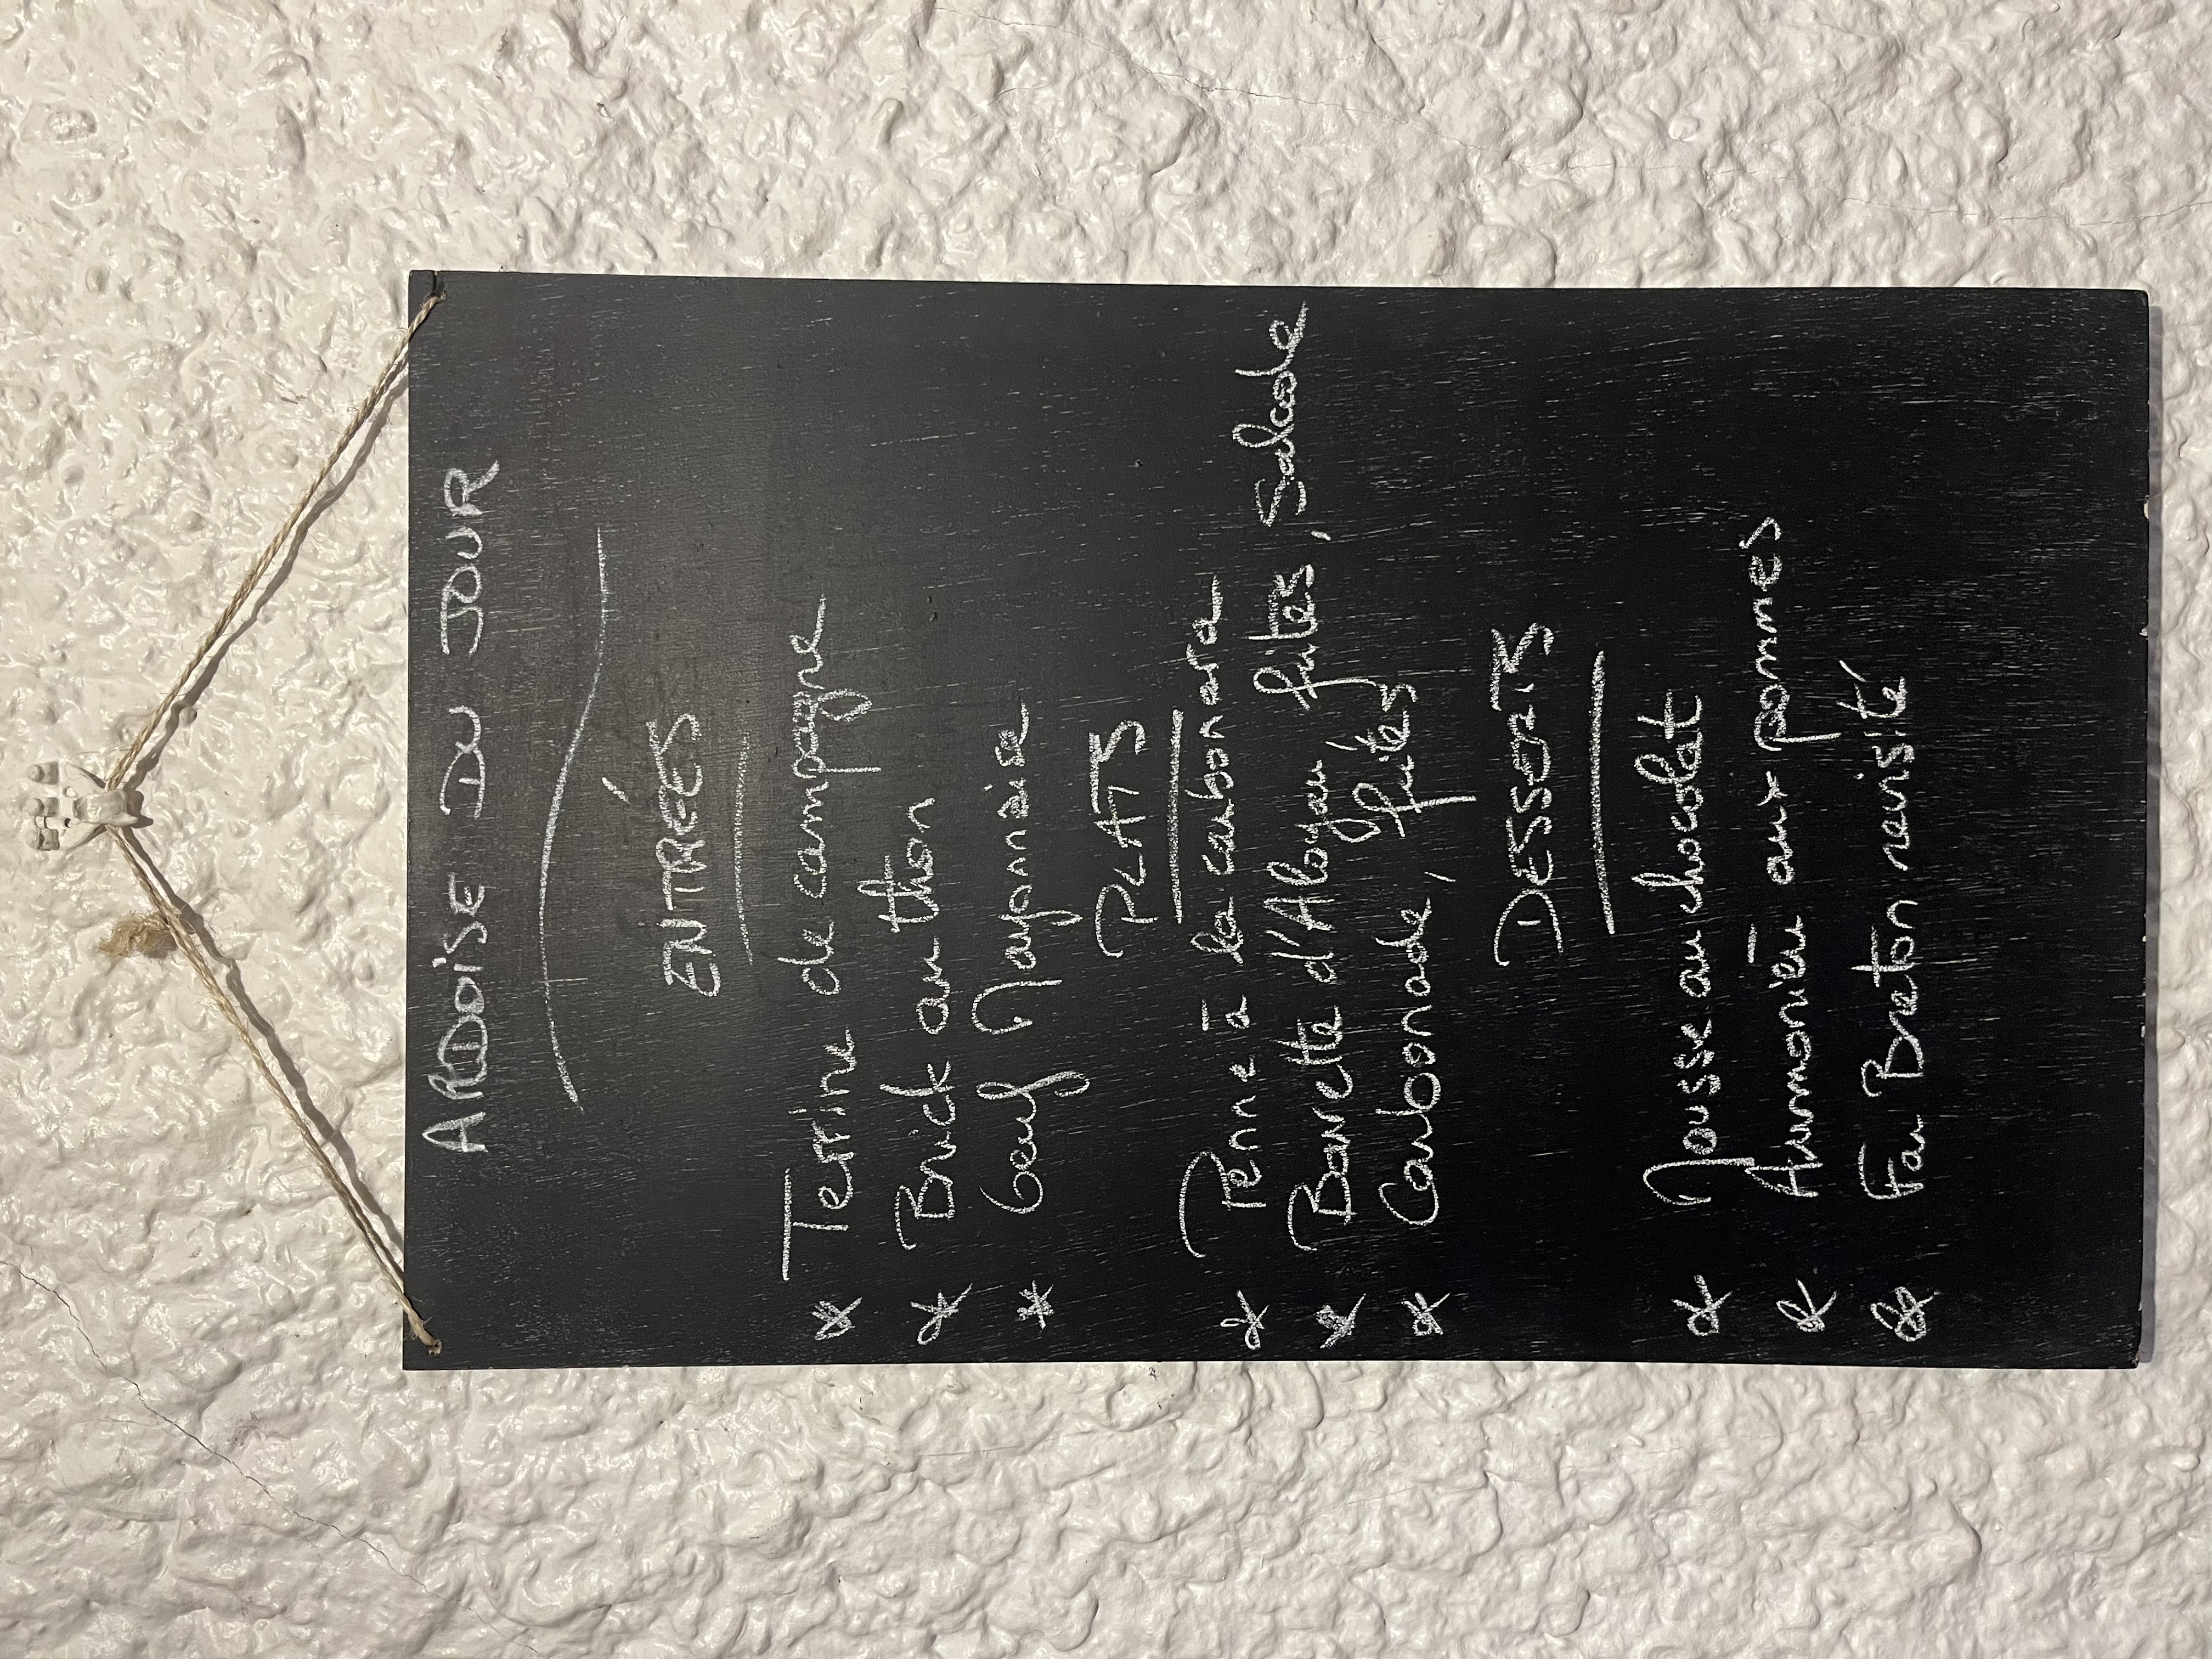 ARDOISE DU JOUR
ENTRÉES
* Terrine de campagne
* Brick au thon
* Oeuf Mayonnaise
PLATS
* Penne à la carbonara
* Bavette d'Aloyau, frites, Salade
* Carbonade, frites
DESSERTS
* Mousse au chocolat
* Aumonière aux pommes
* Far Breton revisité